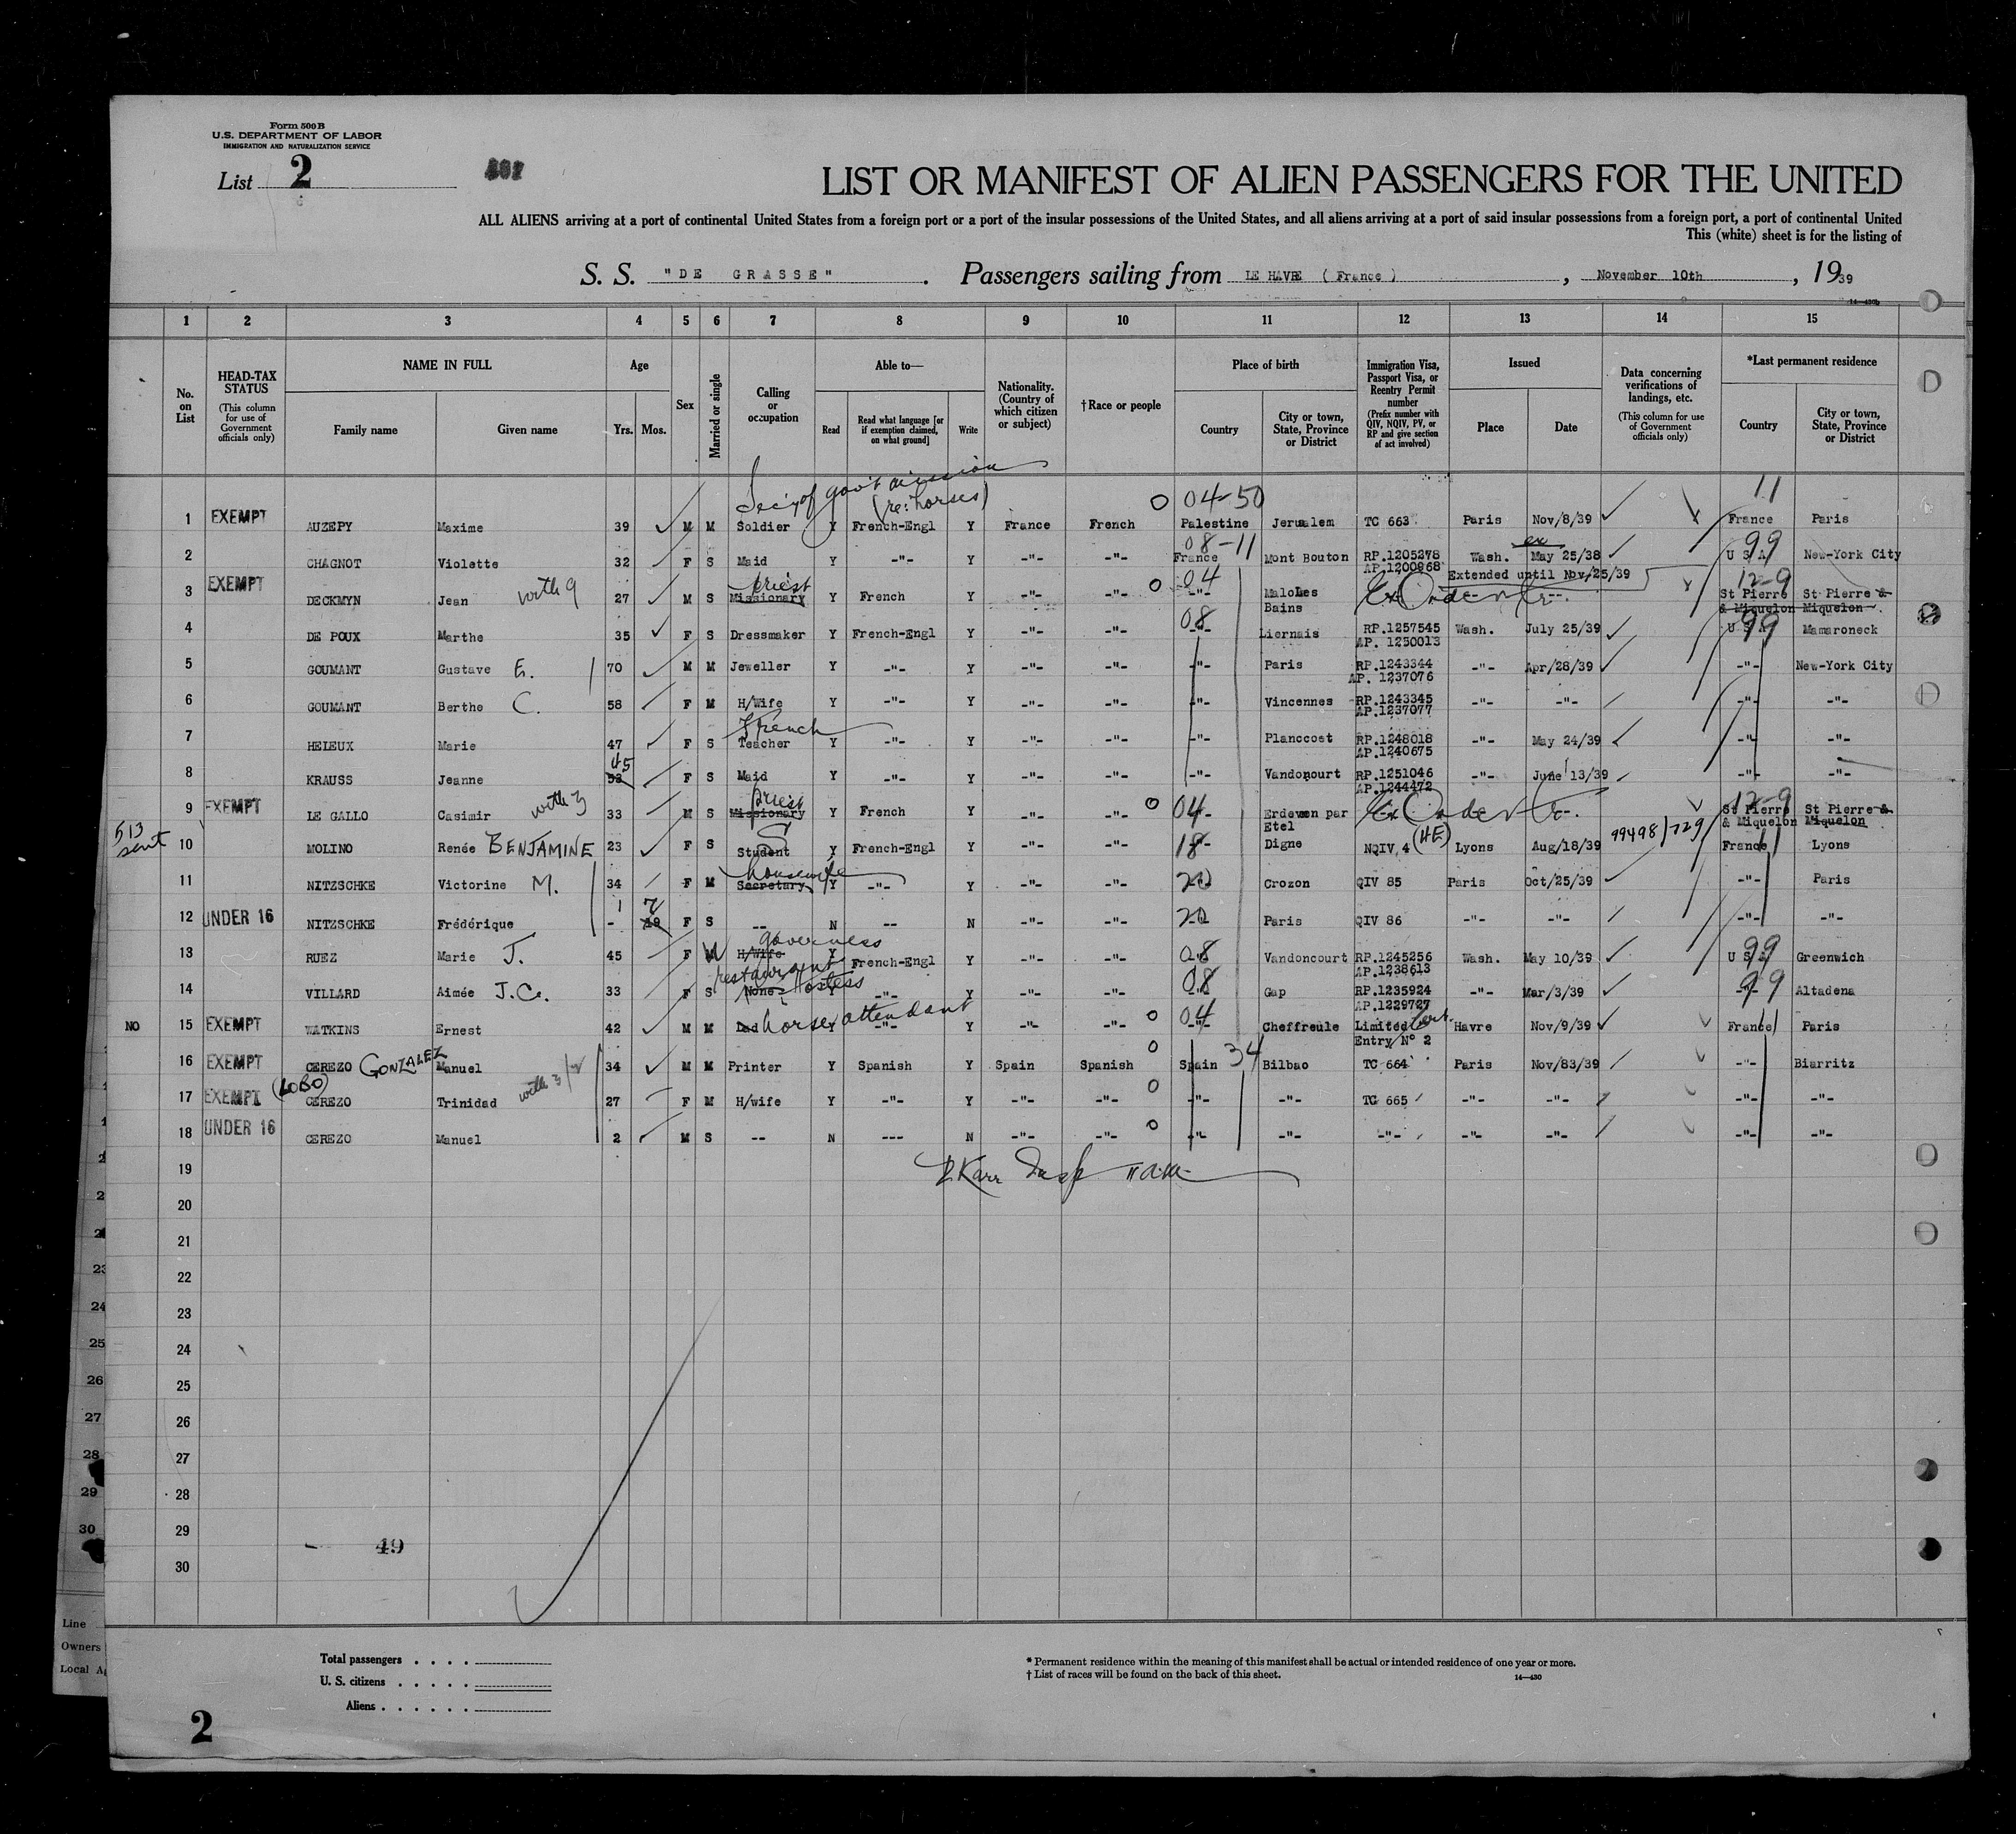 Form 500B
U.S. DEPARTMENT OF LABOR
IMMIGRATION AND NATURALIZATION SERVICE
List 2
LIST OR MANIFEST OF ALIEN PASSENGERS FOR THE UNITED
ALL ALIENS arriving at a port of continental United States from a foreign port or a port of the insular possessions of the United States, and all aliens arriving at a port of said insular possessions from a foreign port, a port of continental United
This (white) sheet is for the listing of
S. S. "DE GRASSE". Passengers sailing from LE HAVRE (France), November 10th, 1939
14—430b
1 2 3 4 5 6 7 8 9 10 11 12 13 14 15
No. on List
HEAD-TAX STATUS (This column for use of Government officials only)
NAME IN FULL
Family name Given name
Age
Yrs. Mos.
Sex
Married or single
Calling or occupation
Able to—
Read Read what language [or if exemption claimed, on what ground] Write
Nationality. (Country of which citizen or subject)
†Race or people
Place of birth
Country City or town, State, Province or District
Immigration Visa, Passport Visa, or Reentry Permit number (Prefix number with QIV, NQIV, PV, or RP and give section of act involved)
Issued
Place Date
Data concerning verifications of landings, etc. (This column for use of Government officials only)
*Last permanent residence
Country City or town, State, Province or District
Sec'y of gov't mission (re: horses) 04-50 11
1 EXEMPT AUZEPY Maxime 39 M M Soldier Y French-Engl Y France French Palestine Jerusalem TC 663 Paris Nov/8/39 France Paris
08-11 ex 99
2 CHAGNOT Violette 32 F S Maid Y -"- Y -"- -"- France Mont Bouton RP.1205278 AP.1200968 Wash. May 25/38 Extended until Nov/25/39 U S A New-York City
3 EXEMPT DECKMYN Jean with 9 27 M S Missionary priest Y French Y -"- -"- 04 -"- MaloLes Bains -"- -"- 12-9 St Pierre & Miquelon St Pierre & Miquelon
4 DE POUX Marthe 35 F S Dressmaker Y French-Engl Y -"- -"- 08 -"- Liernais RP.1257545 AP. 1250013 Wash. July 25/39 99 U S A Mamaroneck
5 GOUMANT Gustave E. 70 M M Jeweller Y -"- Y -"- -"- -"- Paris RP.1243344 AP. 1237076 -"- Apr/28/39 -"- New-York City
6 GOUMANT Berthe C. 58 F M H/Wife Y -"- Y -"- -"- -"- Vincennes RP.1243345 AP.1237077 -"- -"- -"- -"-
7 HELEUX Marie 47 F S French Teacher Y -"- Y -"- -"- -"- Planccost RP.1248018 AP.1240675 -"- May 24/39 -"- -"-
8 KRAUSS Jeanne 53 45 F S Maid Y -"- Y -"- -"- -"- Vandoncourt RP.1251046 AP.1244472 -"- June 13/39 -"- -"-
9 EXEMPT LE GALLO Casimir with 3 33 M S Missionary priest Y French Y -"- -"- 04 -"- Erdeven par Etel -"- 12-9 St Pierre & Miquelon St Pierre & Miquelon
513 sent
10 MOLINO Renée BENJAMINE 23 F S Student Y French-Engl Y -"- -"- 18 -"- Digne NQIV 4 (4E) Lyons Aug/18/39 99498/729 France 11 Lyons
11 NITZSCHKE Victorine M. 34 F M Secretary housewife Y -"- Y -"- -"- 20 Crozon QIV 85 Paris Oct/25/39 -"- Paris
12 UNDER 16 NITZSCHKE Frédérique - 1 F S -- N -- N -"- -"- 20 Paris QIV 86 -"- -"- -"- -"-
13 RUEZ Marie J. 45 F W H/Wife governess Y French-Engl Y -"- -"- 08 Vandoncourt RP.1245256 AP.1238613 Wash. May 10/39 99 U S A Greenwich
14 VILLARD Aimée J.C. 33 F S None restaurant Hostess Y -"- Y -"- -"- 08 Gap RP.1235924 AP.1229727 -"- Mar/3/39 99 -"- Altadena
NO 15 EXEMPT WATKINS Ernest 42 M M Lad horse attendant Y -"- Y -"- -"- 04 -"- Cheffreule Limited Cert. Entry N° 2 Havre Nov/9/39 France 11 Paris
16 EXEMPT CEREZO GONZALEZ Manuel 34 M M Printer Y Spanish Y Spain Spanish Spain 34 Bilbao TC 664 Paris Nov/83/39 -"- Biarritz
17 EXEMPT (LOBO) CEREZO Trinidad with 3 27 F M H/wife Y -"- Y -"- -"- -"- -"- TC 665 -"- -"- -"- -"-
18 UNDER 16 CEREZO Manuel 2 M S -- N --- N -"- -"- -"- -"- -"- -"- -"- -"- -"-
19
20
21
22
23
24
25
26
27
28
29
30
49
Line
Owners
Local A
Total passengers
U. S. citizens
Aliens
* Permanent residence within the meaning of this manifest shall be actual or intended residence of one year or more.
† List of races will be found on the back of this sheet.
14—430
2